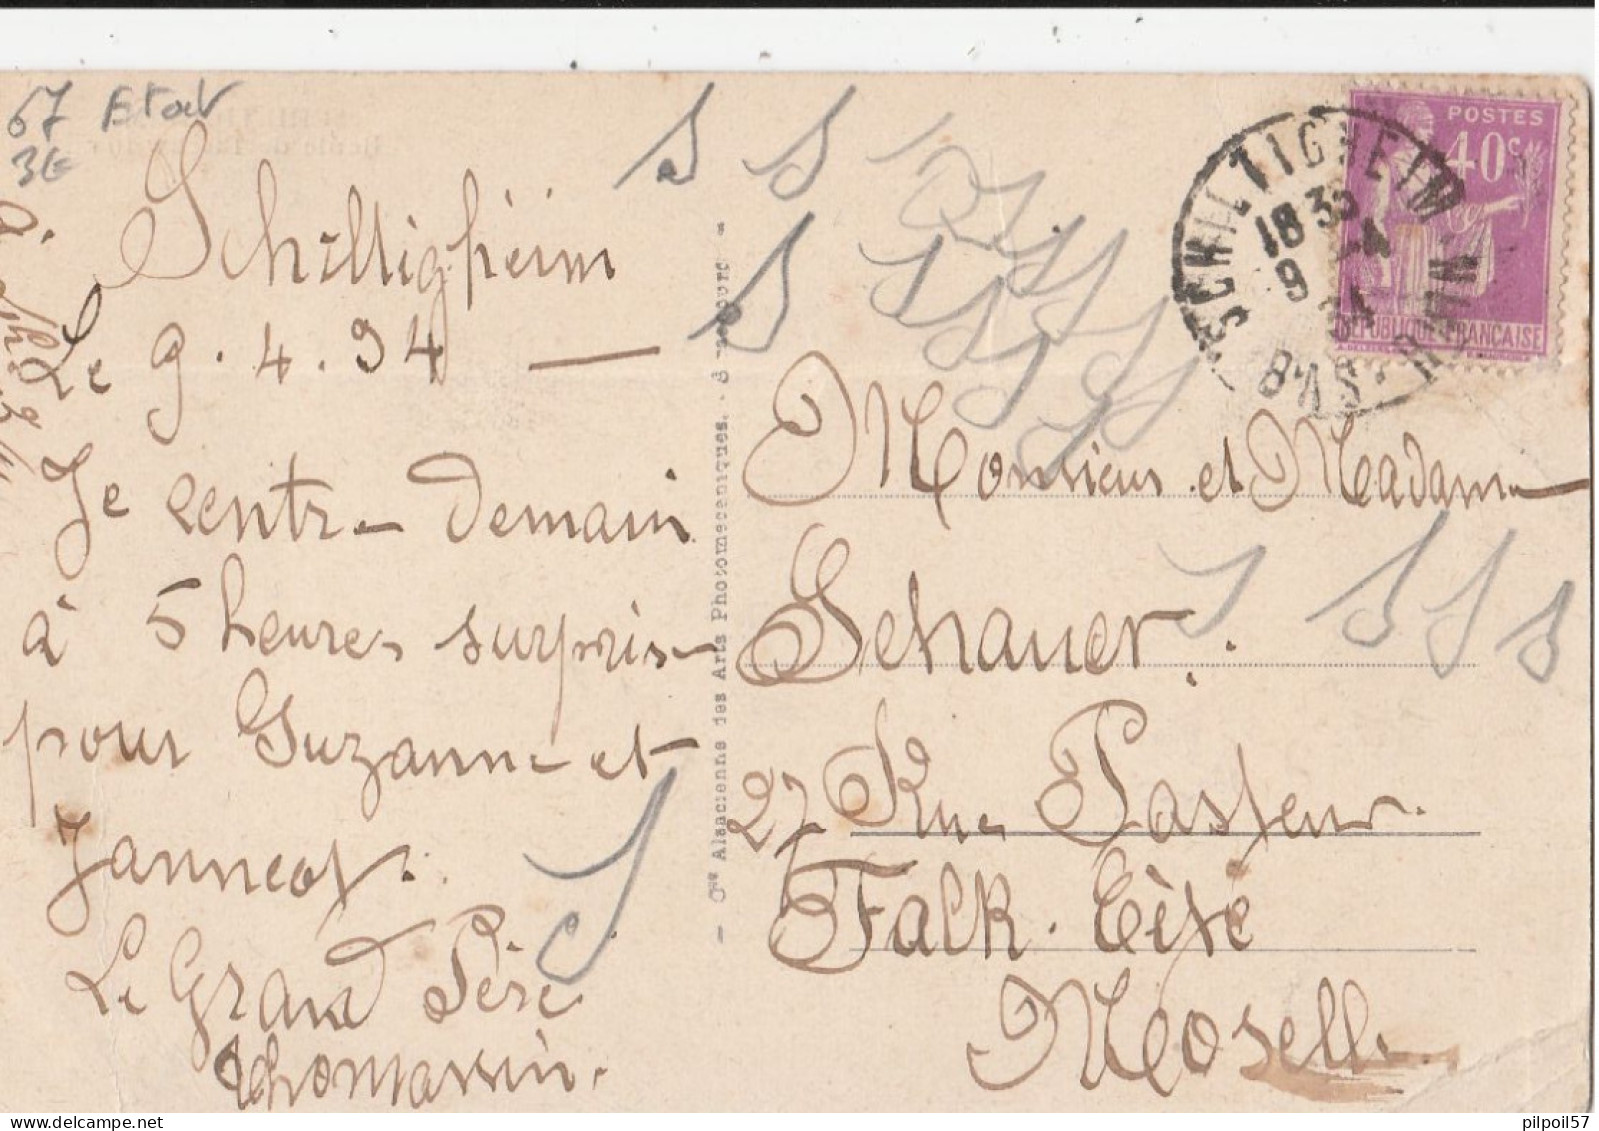 67 Etat
3€
Schilligheim
Le 9.4.34 —
Je rentre demain
à 5 heures surprise
pour Suzanne et
Janneot.
Le Grand Père
Thomassin.
— Cie Alsacienne des Arts Photomecaniques. - Strasbourg —
POSTES
40c
REPUBLIQUE FRANCAISE
SCHILTIGHEIM
18 30
9 -4
34
BAS-RHIN
Monsieur et Madame
Schauer.
27 Rue Pasteur.
Falk. Cèise
Moselle
pilpoil57